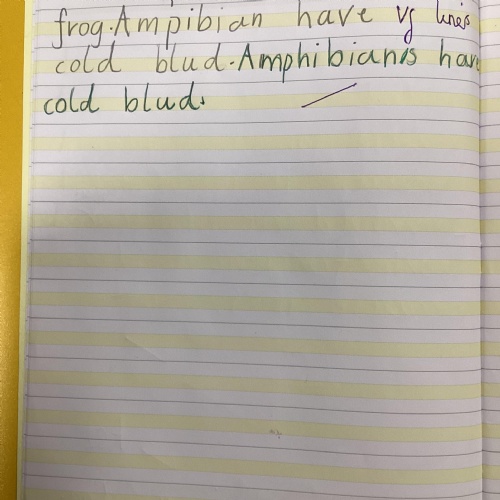 frog. Ampibian have vg lines
cold blud. Amphibians have
cold blud.